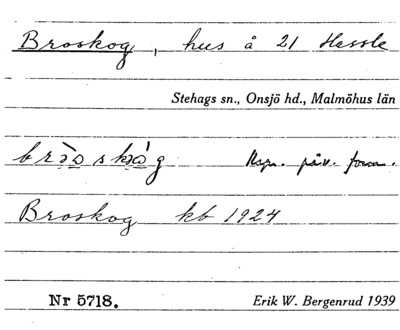 Broskog, hus å 21 Hessle
Stehags sn., Onsjö hd., Malmöhus län
påv. form.
Broskog kb 1924
Nr 5718. Erik W. Bergenrud 1939